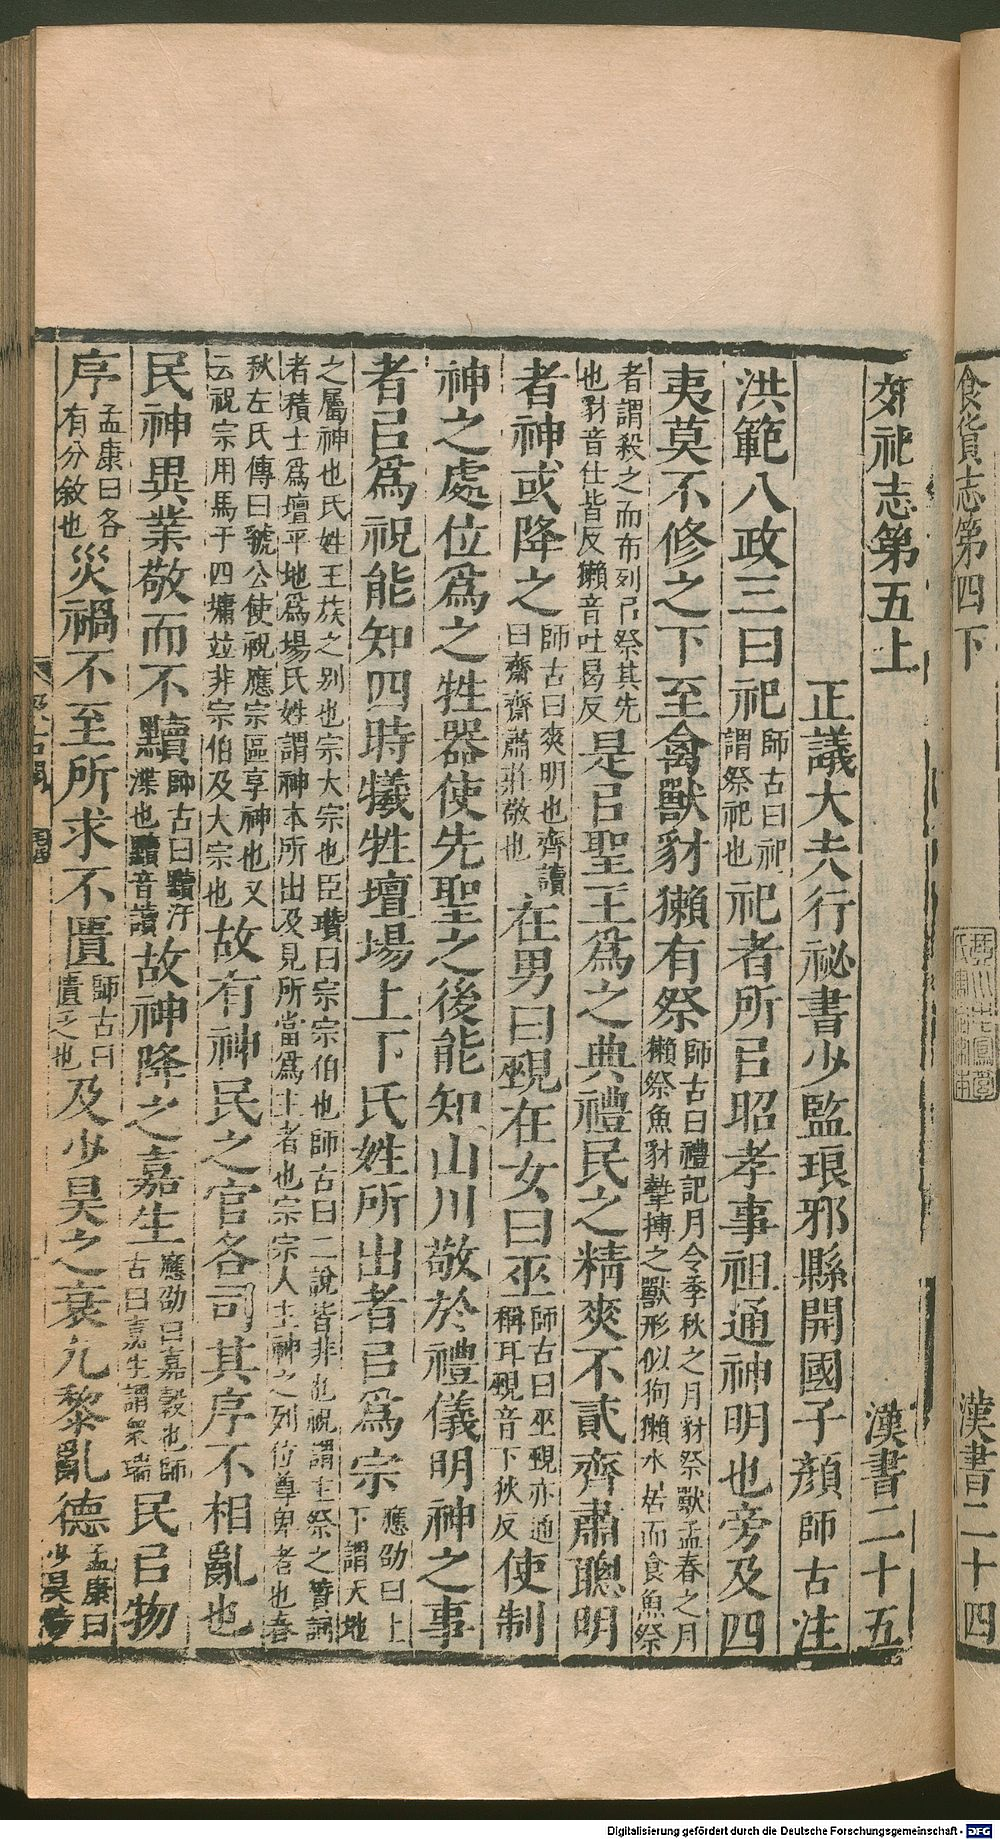 食貨志第四下 漢書二十四
郊祀志第五上 漢書二十五
正議大夫行祕書少監琅邪縣開國子顔師古注
洪範八政三曰祀師古曰祀謂祭祀也祀者所㠯昭孝事祖通神明也旁及四
夷莫不修之下至禽獸豺獺有祭師古曰禮記月令季秋之月豺祭獸孟春之月獺祭魚豺摯搏之獸形似狗獺水居而食魚祭
者謂殺之而布列㠯祭其先也豺音仕皆反獺音吐曷反是㠯聖王爲之典禮民之精爽不貳齊肅聰明
者神或降之師古曰爽明也齊讀曰齋齋肅莊敬也在男曰覡在女曰巫師古曰巫覡亦通稱耳覡音下狄反使制
神之處位爲之牲器使先聖之後能知山川敬於禮儀明神之事
者㠯爲祝能知四時犧牲壇場上下氏姓所出者㠯爲宗應劭曰上下謂天地
之屬神也氏姓王族之别也宗大宗也臣瓚曰宗宗伯也師古曰二說皆非也祝謂主祭之贊詞
者積土爲壇平地爲場氏姓謂神本所出及見所當爲主者也宗宗人主神之列位尊卑者也春
秋左氏傳曰虢公使祝應宗區享神也又云祝宗用馬于四墉竝非宗伯及大宗也故有神民之官各司其序不相亂也
民神異業敬而不黷師古曰黷汙渫也黷音讀故神降之嘉生應劭曰嘉穀也師古曰嘉生謂衆瑞民㠯物
序孟康曰各有分敘也災禍不至所求不匱師古曰匱乏也及少昊之衰九黎亂德孟康曰少昊時
Digitalisierung gefördert durch die Deutsche Forschungsgemeinschaft - DFG